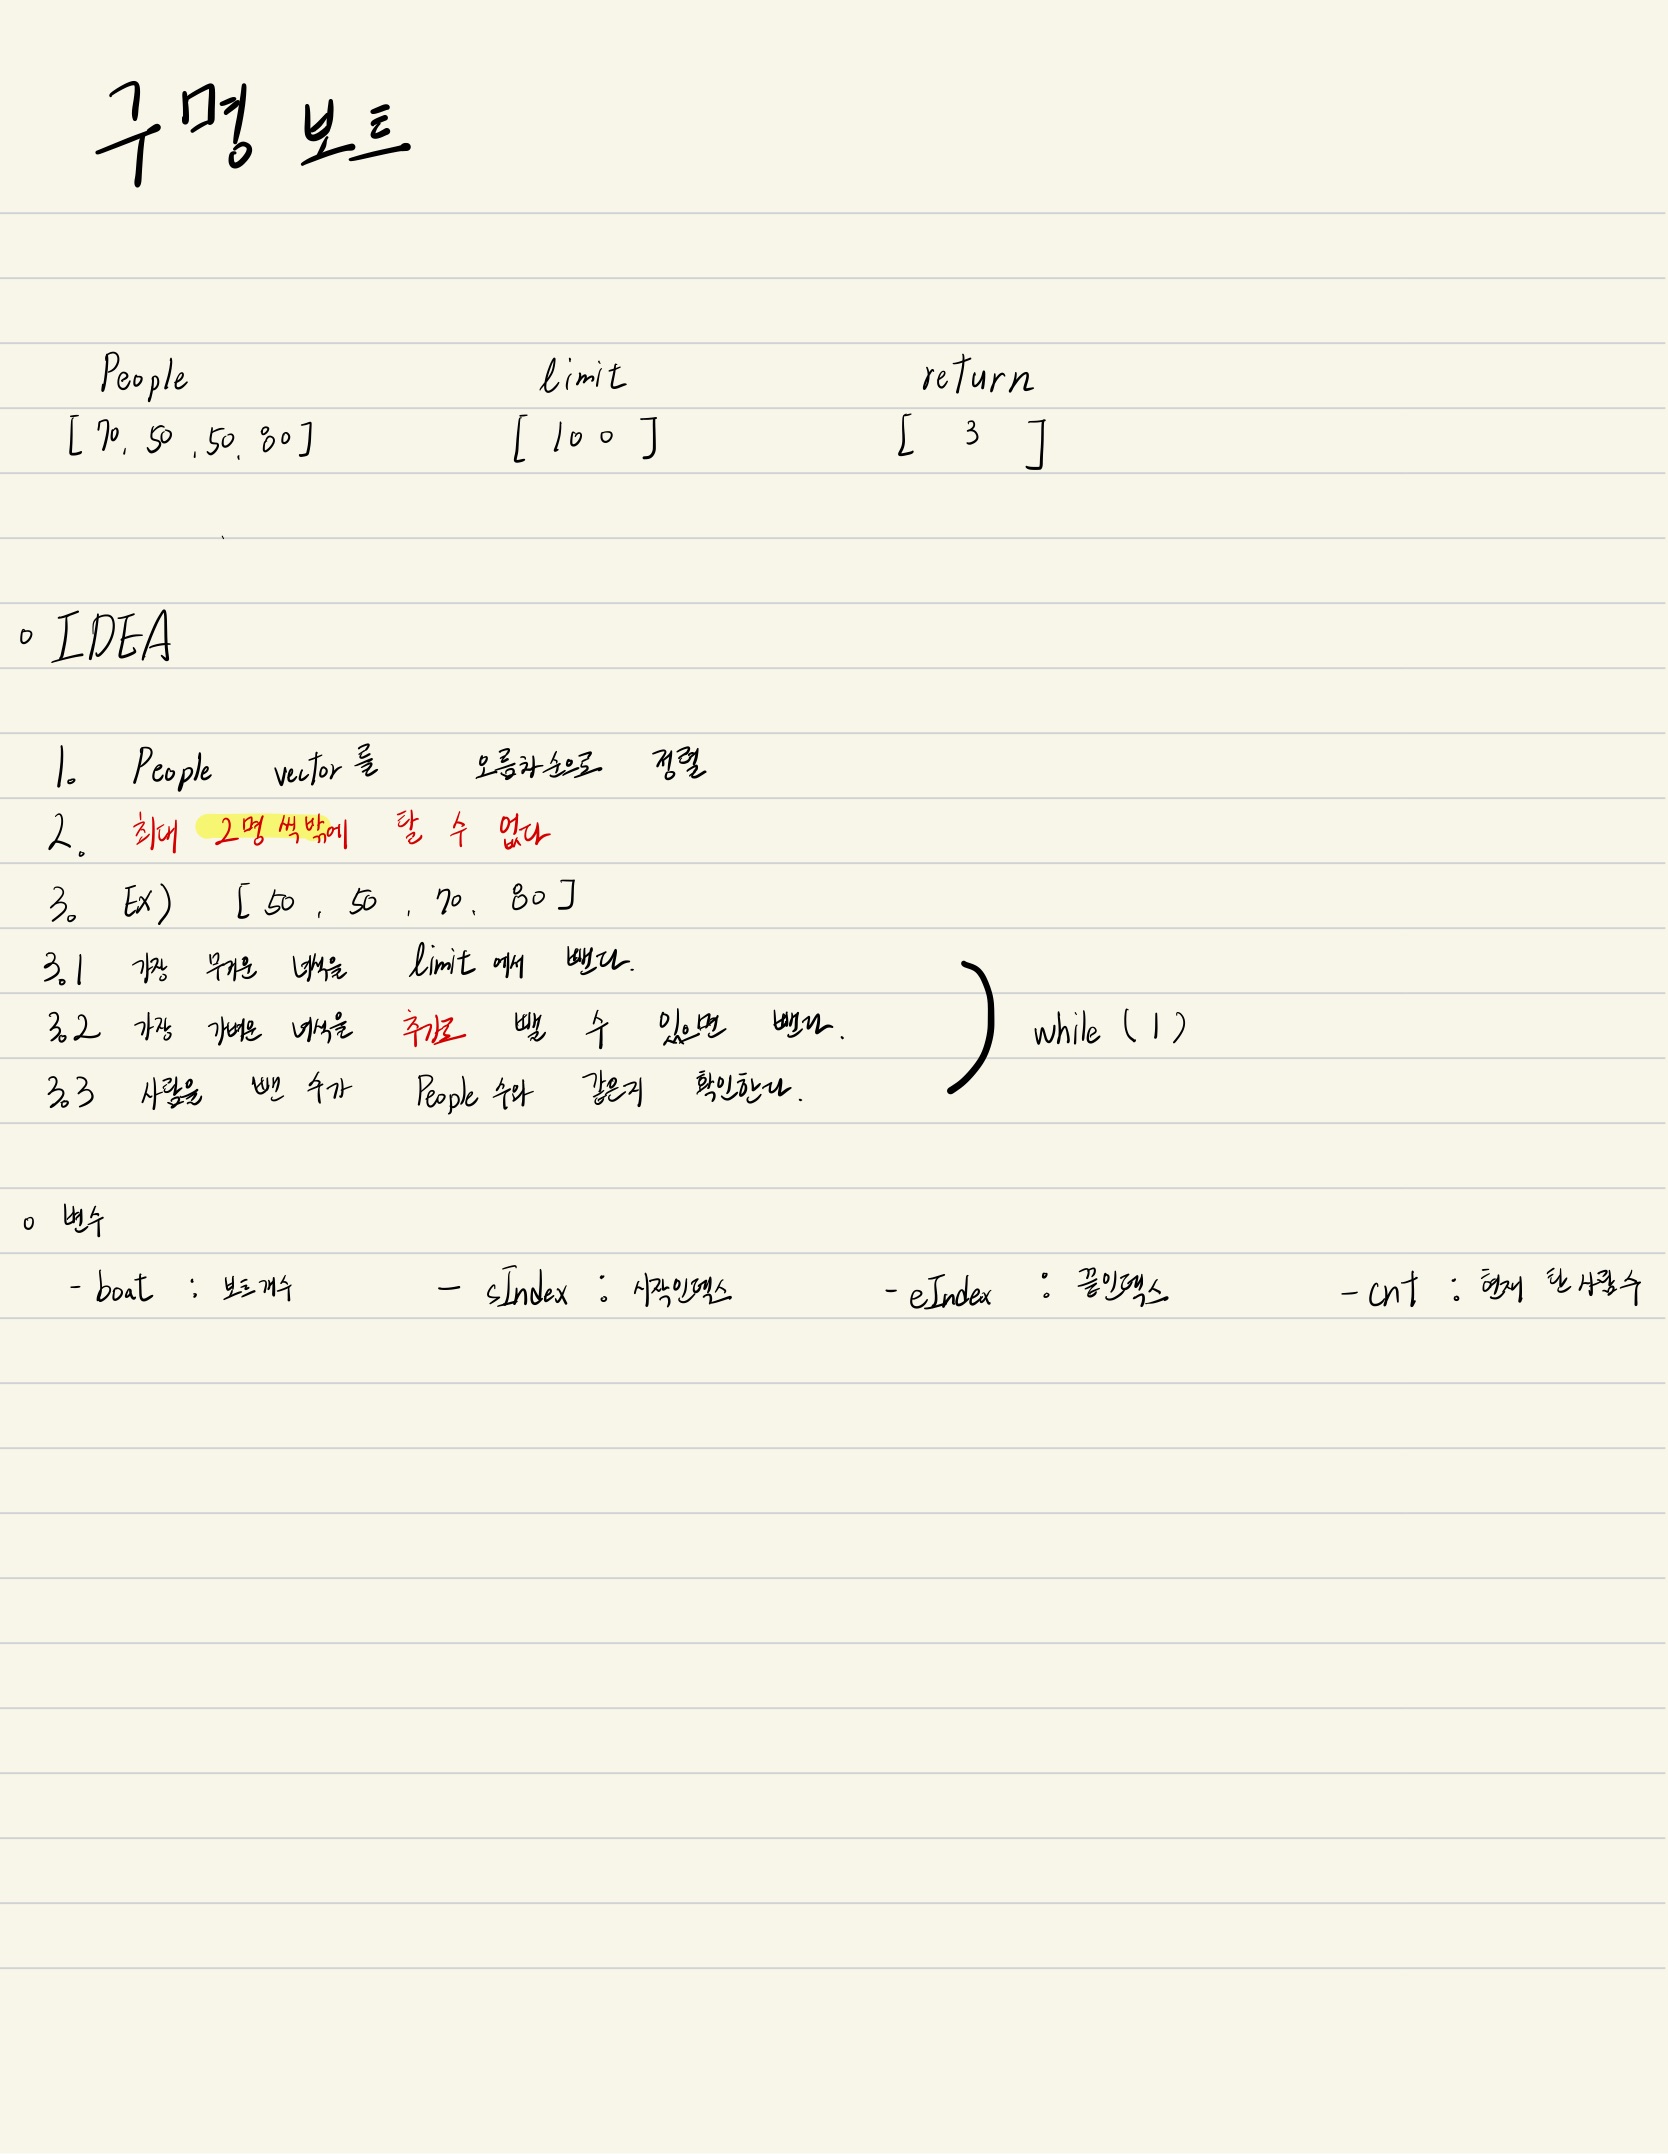 구명 보트
People limit return
[ 70, 50, 50, 80 ] [ 100 ] [ 3 ]
○ IDEA
1. People vector를 오름차순으로 정렬
2. 최대 2명 씩 밖에 탈 수 없다
3. Ex) [ 50, 50, 70, 80 ]
3.1 가장 무거운 녀석을 limit 에서 뺀다.
3.2 가장 가벼운 녀석을 추가로 뺄 수 있으면 뺀다. while ( 1 )
3.3 사람을 뺀 수가 People 수와 같은지 확인한다.
○ 변수
- boat : 보트개수 - sIndex : 시작인덱스 - eIndex : 끝인덱스 - cnt : 현재 탄 사람수